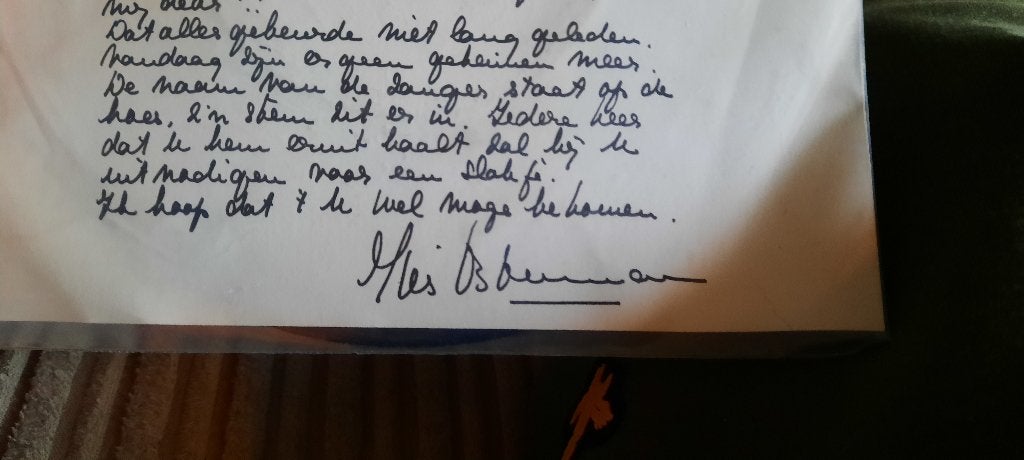 Dat alles gebeurde niet lang geleden.
Vandaag zijn er geen geheimen meer.
De naam van de zanger staat op de
hoes, z'n stem zit er in. Iedere keer
dat U hem eruit haalt zal hij U
uitnodigen voor een slokje.
Ik hoop dat 't U wel moge bekomen.